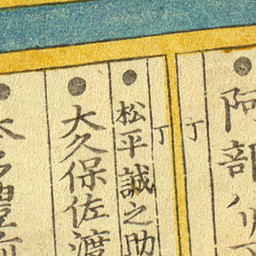 阿部
丁
丁
松平誠之助
大久保佐渡